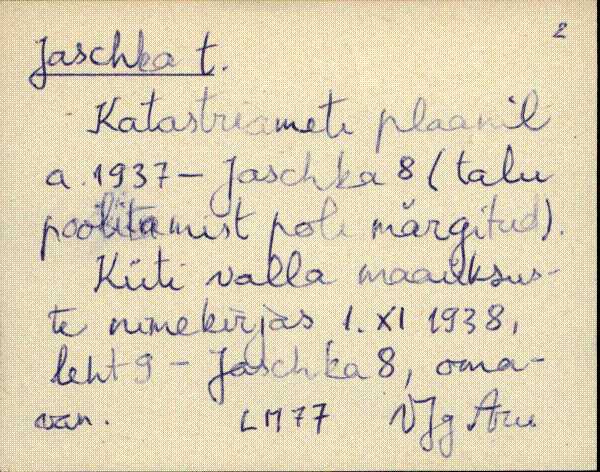 2
Jaschka t.
Katastriameti plaanil
a. 1937 – Jaschka 8 (talu
poolitamist pole märgitud).
Küti valla maaüksus-
te nimekirjas 1. XI 1938,
leht 9 – Jaschka 8, oma-
van. LM77